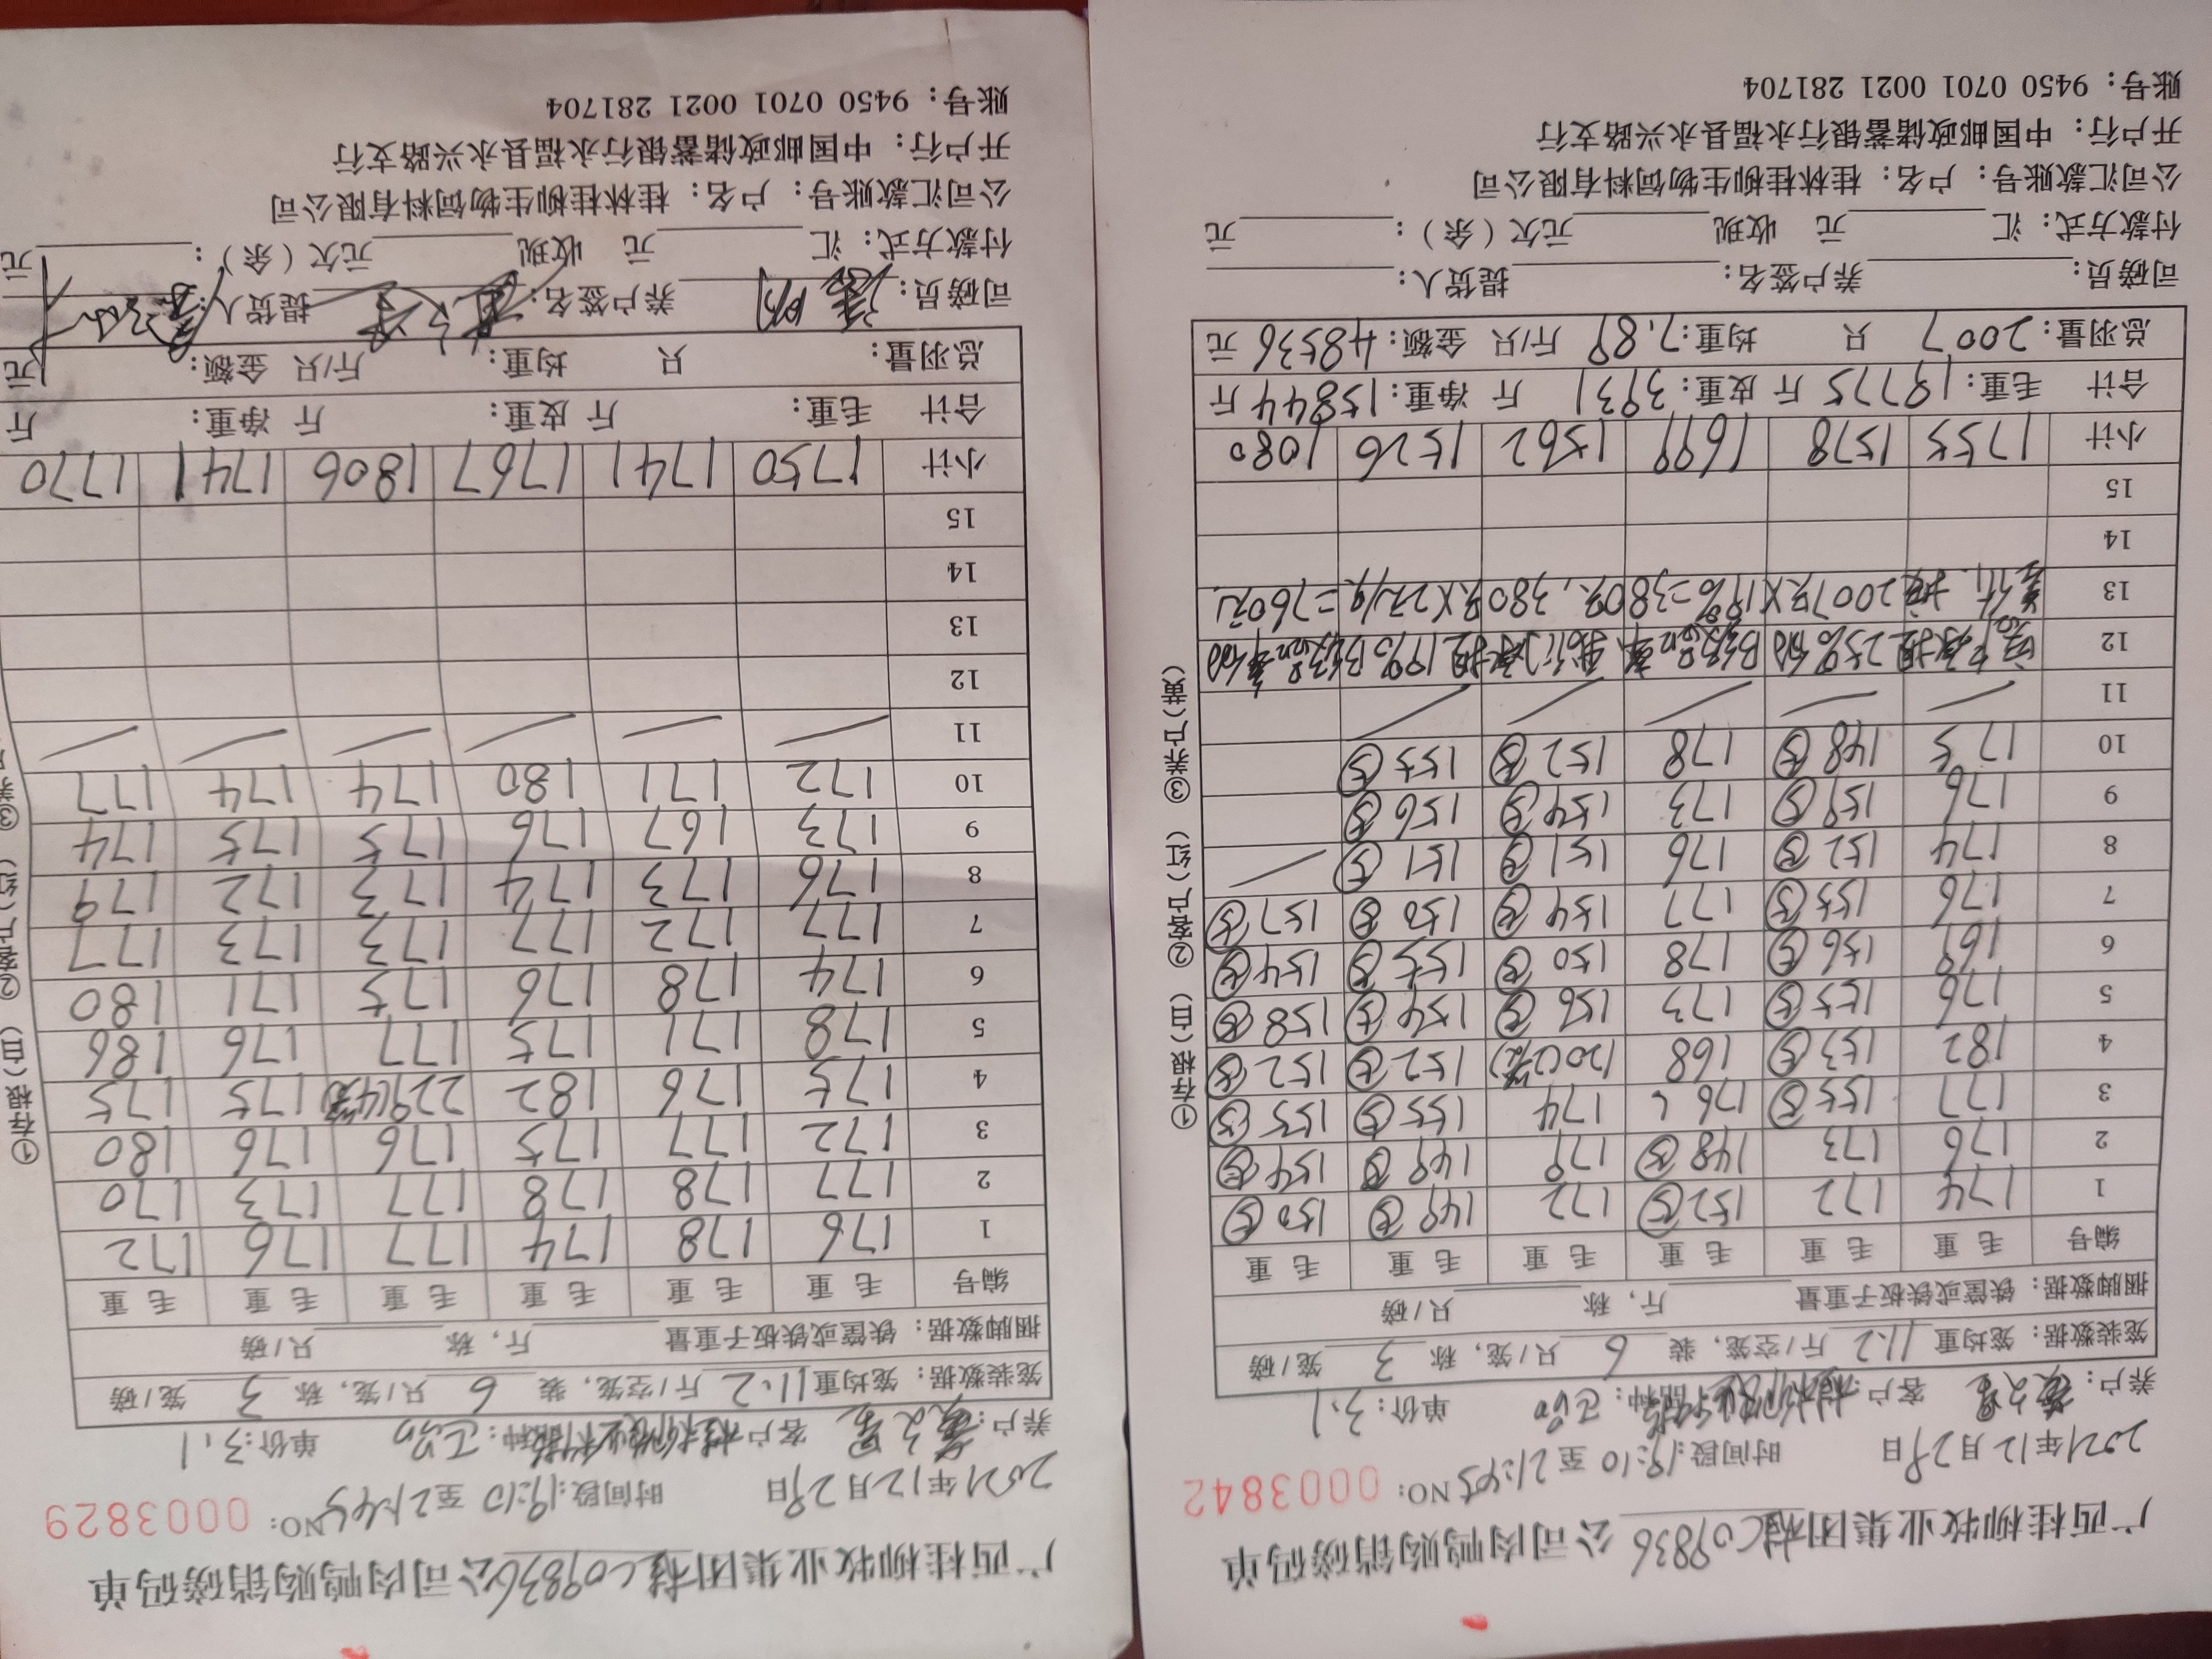 广西桂柳牧业集团桂C09836公司肉鸭购销磅码单
2021年12月29日 时间段:19:10 至 21:45 NO: 0003842
养户: 客户: 品种: 单价:3.1
笼装数据: 笼均重 11.2 斤/空笼, 装 6 只/笼, 称 3 笼/磅
捆脚数据: 铁筐或铁板子重量 斤, 称 只/磅
编号 毛重 毛重 毛重 毛重 毛重 毛重
1 174 172 152⑤ 172 149⑤ 150⑤
2 176 173 148⑤ 179 149⑤ 154⑤
3 177 155⑤ 176 174 155⑤ 155⑤
4 182 153⑤ 168 120(2笼) 152⑤ 152⑤
5 176 155⑤ 173 156⑤ 154⑤ 158⑤
6 169 156⑤ 178 150⑤ 155⑤ 154⑤
7 176 155⑤ 177 154⑤ 150⑤ 157⑤
8 174 152⑤ 176 151⑤ 151⑤
9 176 159⑤ 173 154⑤ 156⑤
10 175 148⑤ 178 152⑤ 155⑤
11
12 25% B级 19% B级
13 2007只×19%=380只, 380只×2元/只=760元.
14
15
小计 1755 1578 1699 1562 1526 1080
合计 毛重: 19775 斤 皮重: 3931 斤 净重: 15844 斤
总羽量: 2007 只 均重: 7.89 斤/只 金额: 48536 元
司磅员: 养户签名: 提货人:
付款方式: 汇 元 收现 元欠(余): 元
公司汇款账号: 户名: 桂林桂柳生物饲料有限公司
开户行: 中国邮政储蓄银行永福县永兴路支行
账号: 9450 0701 0021 281704
①存根(白) ②客户(红) ③养户(黄)
广西桂柳牧业集团桂C09836公司肉鸭购销磅码单
2021年12月29日 时间段:19:10 至 21:45 NO: 0003829
养户: 客户: 品种: 单价:3.1
笼装数据: 笼均重 11.2 斤/空笼, 装 6 只/笼, 称 3 笼/磅
捆脚数据: 铁筐或铁板子重量 斤, 称 只/磅
编号 毛重 毛重 毛重 毛重 毛重 毛重
1 176 178 174 177 176 172
2 177 178 178 177 173 170
3 172 177 175 176 176 180
4 175 176 182 229(4笼) 175 175
5 178 171 175 177 176 186
6 174 178 176 175 171 180
7 177 172 177 173 173 177
8 176 173 174 173 172 179
9 173 167 176 175 175 174
10 172 171 180 174 174 177
11
12
13
14
15
小计 1750 1741 1767 1806 1741 1770
合计 毛重: 斤 皮重: 斤 净重: 斤
总羽量: 只 均重: 斤/只 金额: 元
司磅员: 养户签名: 提货人:
付款方式: 汇 元 收现 元欠(余): 元
公司汇款账号: 户名: 桂林桂柳生物饲料有限公司
开户行: 中国邮政储蓄银行永福县永兴路支行
账号: 9450 0701 0021 281704
①存根(白) ②客户(红) ③养